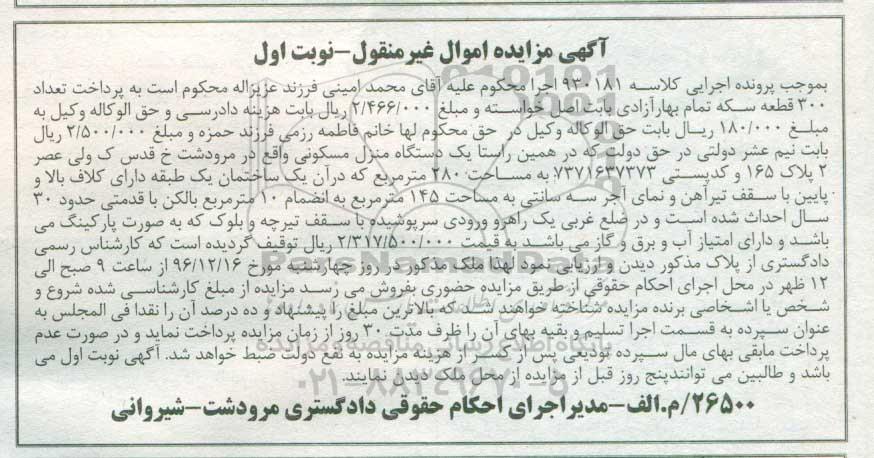 آگهی مزایده اموال غیرمنقول-نوبت اول
بموجب پرونده اجرایی کلاسه ۹۳۰۱۸۱ اجرا محکوم علیه آقای محمد امینی فرزند عزیزاله محکوم است به پرداخت تعداد
۳۰۰ قطعه سکه تمام بهارآزادی بابت اصل خواسته و مبلغ ۲/۴۶۶/۰۰۰ ریال بابت هزینه دادرسی و حق الوکاله وکیل به
مبلغ ۱۸۰/۰۰۰ ریال بابت حق الوکاله وکیل در حق محکوم لها خانم فاطمه رزمی فرزند حمزه و مبلغ ۲/۵۰۰/۰۰۰ ریال
بابت نیم عشر دولتی در حق دولت که در همین راستا یک دستگاه منزل مسکونی واقع در مرودشت خ قدس ک ولی عصر
۲ پلاک ۱۶۵ و کدپستی ۷۳۷۱۶۳۷۳۷۳ به مساحت ۲۸۰ مترمربع که درآن یک ساختمان یک طبقه دارای کلاف بالا و
پایین با سقف تیرآهن و نمای آجر سه سانتی به مساحت ۱۴۵ مترمربع به انضمام ۱۰ مترمربع بالکن با قدمتی حدود ۳۰
سال احداث شده است و در ضلع غربی یک راهرو ورودی سرپوشیده با سقف تیرچه و بلوک که به صورت پارکینگ می
باشد و دارای امتیاز آب و برق و گاز می باشد به قیمت ۲/۳۱۷/۵۰۰/۰۰۰ ریال توقیف گردیده است که کارشناس رسمی
دادگستری از پلاک مذکور دیدن و ارزیابی نمود لهذا ملک مذکور در روز چهارشنبه مورخ ۹۶/۱۲/۱۶ از ساعت ۹ صبح الی
۱۲ ظهر در محل اجرای احکام حقوقی از طریق مزایده حضوری بفروش می رسد مزایده از مبلغ کارشناسی شده شروع و
شخص یا اشخاصی برنده مزایده شناخته خواهند شد که بالاترین مبلغ را پیشنهاد و ده درصد آن را نقدا فی المجلس به
عنوان سپرده به قسمت اجرا تسلیم و بقیه بهای آن را ظرف مدت ۳۰ روز از زمان مزایده پرداخت نماید و در صورت عدم
پرداخت مابقی بهای مال سپرده تودیعی پس از کسر از هزینه مزایده به نفع دولت ضبط خواهد شد. آگهی نوبت اول می
باشد و طالبین می توانندپنج روز قبل از مزایده از محل ملک دیدن نمایند.
۲۶۵۰۰/م.الف-مدیراجرای احکام حقوقی دادگستری مرودشت-شیروانی
ParsNamadData
پایگاه اطلاع رسانی مناقصه و مزایده
۰۲۱-۸۸۳۴۹۶۷۰-۵